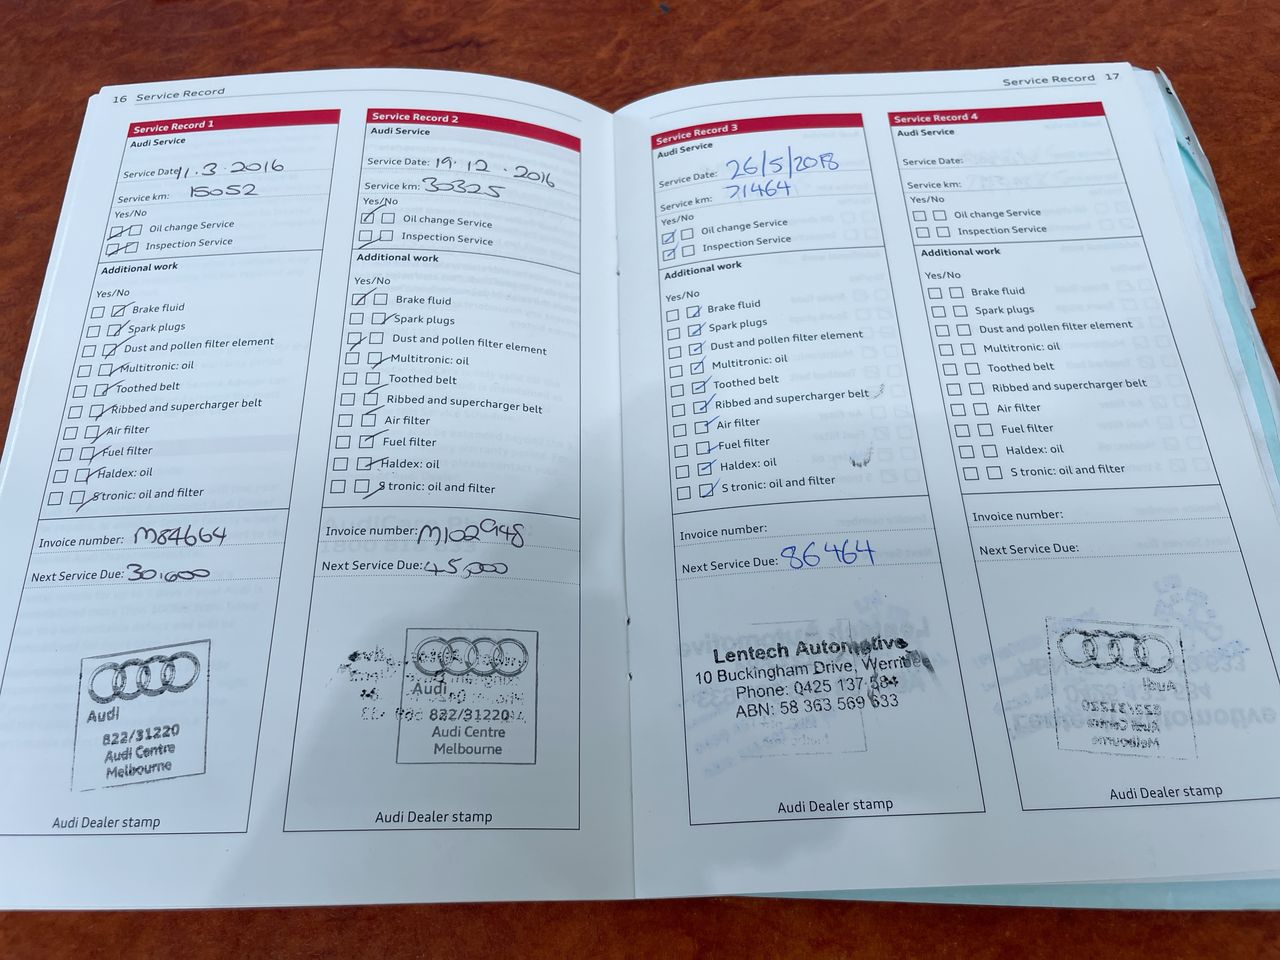 16 Service Record
Service Record 1
Audi Service
Service Date: 11.3.2016
Service km: 15052
Yes/No
Oil change Service
Inspection Service
Additional work
Yes/No
Brake fluid
Spark plugs
Dust and pollen filter element
Multitronic: oil
Toothed belt
Ribbed and supercharger belt
Air filter
Fuel filter
Haldex: oil
S tronic: oil and filter
Invoice number: M84664
Next Service Due: 30,000
Audi
822/31220
Audi Centre
Melbourne
Audi Dealer stamp
Service Record 2
Audi Service
Service Date: 19.12.2016
Service km: 30325
Yes/No
Oil change Service
Inspection Service
Additional work
Yes/No
Brake fluid
Spark plugs
Dust and pollen filter element
Multitronic: oil
Toothed belt
Ribbed and supercharger belt
Air filter
Fuel filter
Haldex: oil
S tronic: oil and filter
Invoice number: M102948
Next Service Due: 45,000
Audi
822/31220
Audi Centre
Melbourne
Audi Dealer stamp
Service Record 17
Service Record 3
Audi Service
Service Date: 26/5/2018
Service km: 71464
Yes/No
Oil change Service
Inspection Service
Additional work
Yes/No
Brake fluid
Spark plugs
Dust and pollen filter element
Multitronic: oil
Toothed belt
Ribbed and supercharger belt
Air filter
Fuel filter
Haldex: oil
S tronic: oil and filter
Invoice number:
Next Service Due: 86464
Lentech Automotive
10 Buckingham Drive, Werribee
Phone: 0425 137 584
ABN: 58 363 569 633
Audi Dealer stamp
Service Record 4
Audi Service
Service Date:
Service km:
Yes/No
Oil change Service
Inspection Service
Additional work
Yes/No
Brake fluid
Spark plugs
Dust and pollen filter element
Multitronic: oil
Toothed belt
Ribbed and supercharger belt
Air filter
Fuel filter
Haldex: oil
S tronic: oil and filter
Invoice number:
Next Service Due:
Audi Dealer stamp